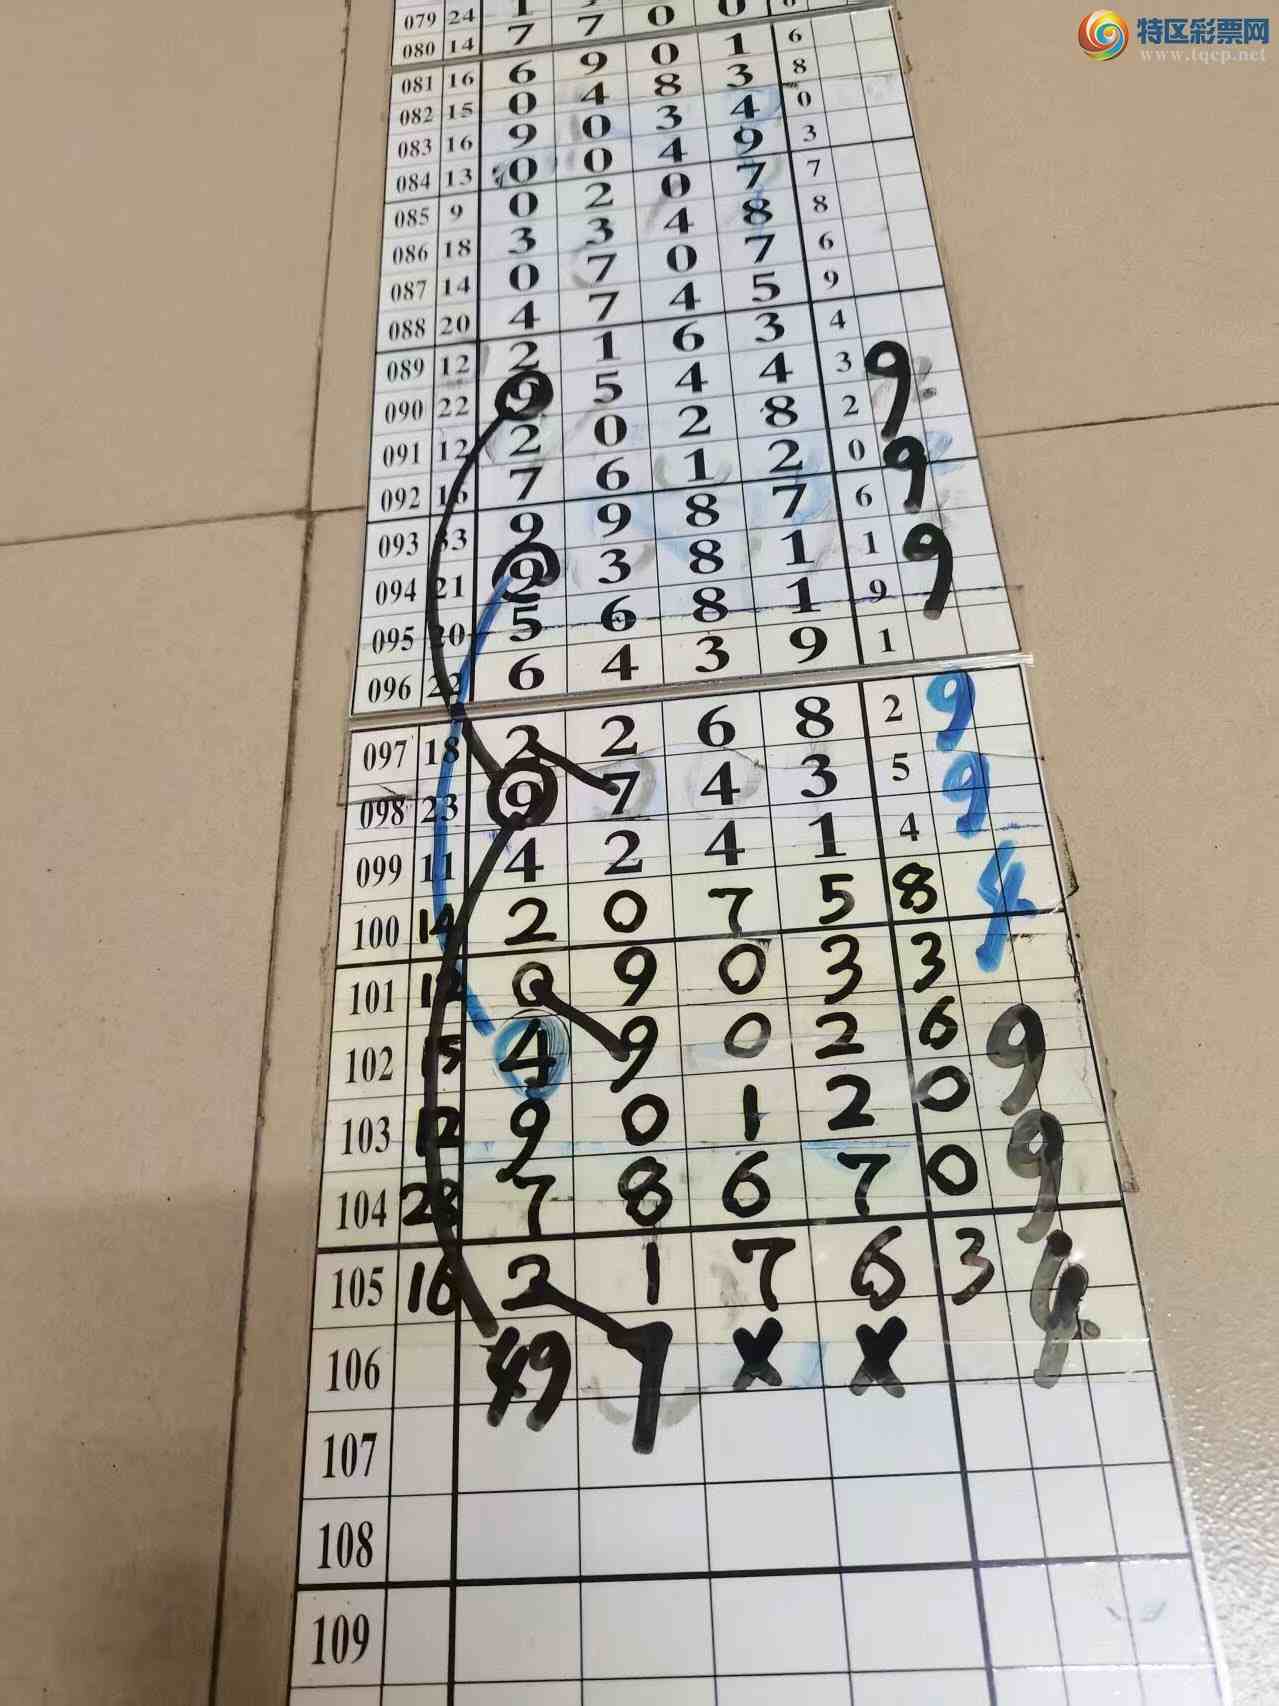 特区彩票网
www.tqcp.net
079 24 1 0 0
080 14 7 7 0 0
081 16 6 9 0 1 6
082 15 0 4 8 3 8
083 16 9 0 3 4 0
084 13 0 0 4 9 3
085 9 0 2 0 7 7
086 18 3 3 4 8 8
087 14 0 7 0 7 6
088 20 4 7 4 5 9
089 12 2 1 6 3 4
090 22 9 5 4 4 3 9
091 12 2 0 2 8 2
092 16 7 6 1 2 0 9
093 33 9 9 8 7 6
094 21 9 3 8 1 1 9
095 20 5 6 8 1 9
096 22 6 4 3 9 1
097 18 2 2 6 8 2 9
098 23 9 7 4 3 5 9
099 11 4 2 4 1 4
100 14 2 0 7 5 8 4
101 12 0 9 0 3 3
102 15 4 9 0 2 6 9
103 12 9 0 1 2 0
104 28 7 8 6 7 0 9
105 16 2 1 7 6 3 4
106 49 7 X X
107
108
109